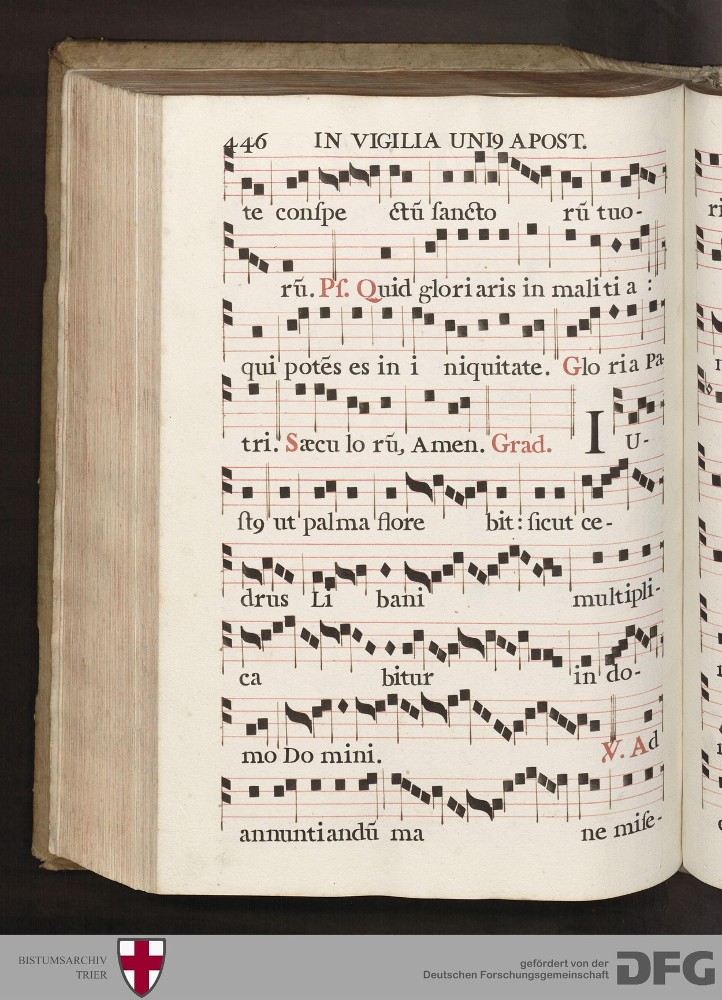 446 IN VIGILIA UNI9 APOST.
te conſpe ctū ſancto rū tuo-
rū. Pſ. Quid gloriaris in malitia :
qui potēs es in i niquitate. Glo ria Pa-
tri. Sæcu lo rū, Amen. Grad. I U-
ſt9 ut palma flore bit: ſicut ce-
drus Li bani multipli-
ca bitur in do-
mo Do mini. V. Ad
annuntiandū ma ne miſe-
ri
BISTUMSARCHIV
TRIER
gefördert von der
Deutschen Forschungsgemeinschaft
DFG